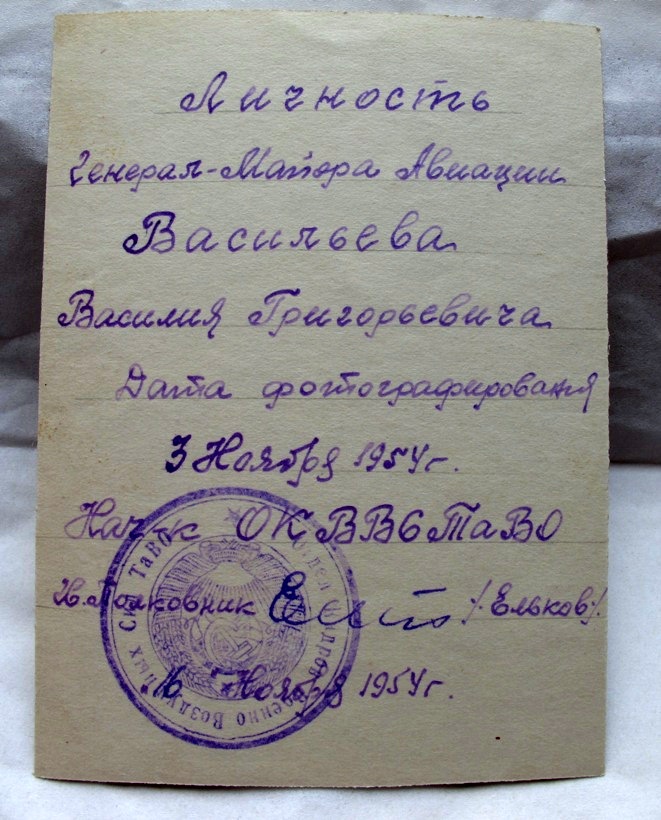 Личность
Генерал-Майора Авиации
Васильева
Василия Григорьевича
Дата фотографирования
3 Ноября 1954 г.
Нач-к ОК ВВС ТаВО
Полковник /Ельков/.
16 Ноября 1954 г.
Отдел Кадров Военно Воздушных Сил ТаВО